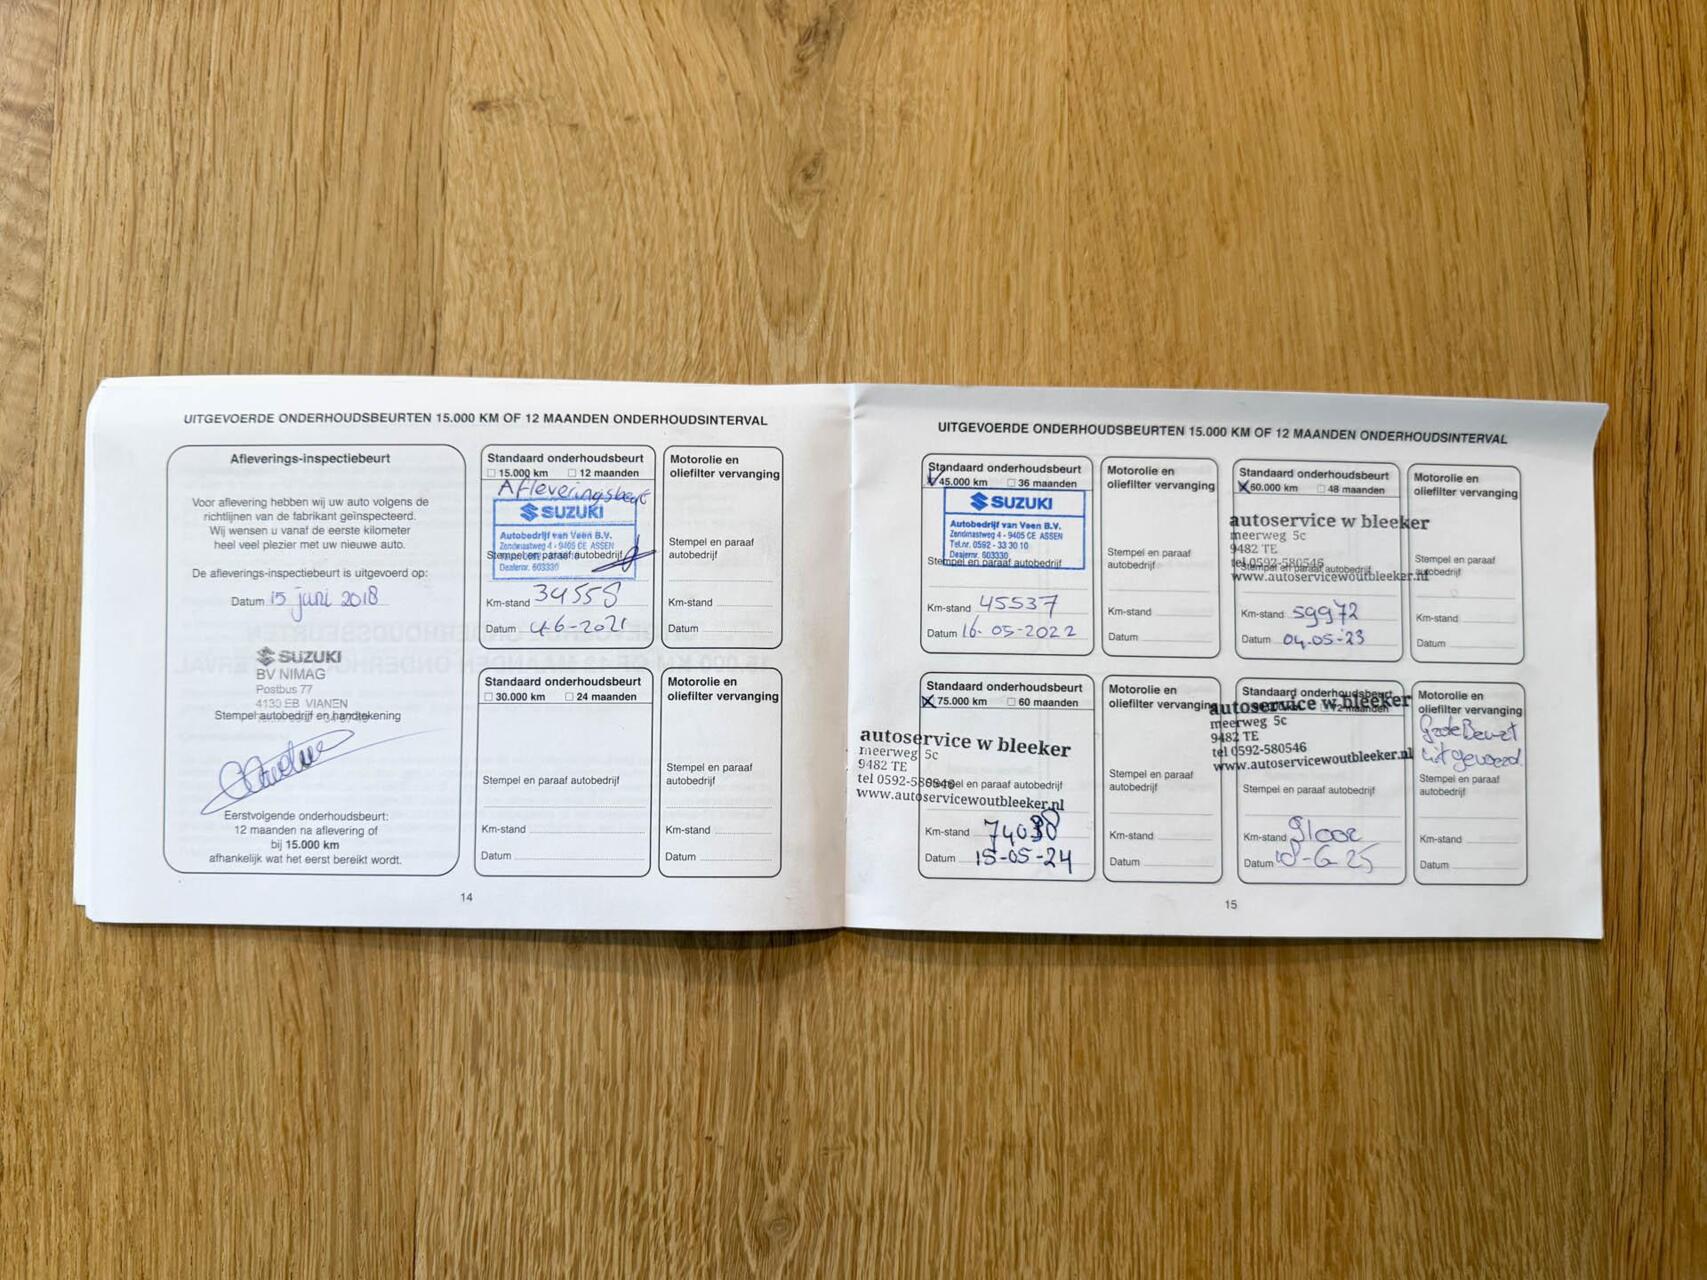 UITGEVOERDE ONDERHOUDSBEURTEN 15.000 KM OF 12 MAANDEN ONDERHOUDSINTERVAL
Afleverings-inspectiebeurt
Voor aflevering hebben wij uw auto volgens de
richtlijnen van de fabrikant geïnspecteerd.
Wij wensen u vanaf de eerste kilometer
heel veel plezier met uw nieuwe auto.
De afleverings-inspectiebeurt is uitgevoerd op:
Datum 15 juni 2018
SUZUKI
BV NIMAG
Postbus 77
4130 EB VIANEN
Stempel autobedrijf en handtekening
Eerstvolgende onderhoudsbeurt:
12 maanden na aflevering of
bij 15.000 km
afhankelijk wat het eerst bereikt wordt.
Standaard onderhoudsbeurt
15.000 km 12 maanden
Afleveringsbeurt
SUZUKI
Autobedrijf van Veen B.V.
Zendmastweg 4 - 9405 CE ASSEN
Stempel en paraaf autobedrijf
Dealernr. 603330
Km-stand 34558
Datum 4-6-2021
Motorolie en
oliefilter vervanging
Stempel en paraaf
autobedrijf
Km-stand
Datum
Standaard onderhoudsbeurt
30.000 km 24 maanden
Stempel en paraaf autobedrijf
Km-stand
Datum
Motorolie en
oliefilter vervanging
Stempel en paraaf
autobedrijf
Km-stand
Datum
14
UITGEVOERDE ONDERHOUDSBEURTEN 15.000 KM OF 12 MAANDEN ONDERHOUDSINTERVAL
Standaard onderhoudsbeurt
45.000 km 36 maanden
SUZUKI
Autobedrijf van Veen B.V.
Zendmastweg 4 - 9405 CE ASSEN
Tel.nr. 0592 - 33 30 10
Dealernr. 603330
Stempel en paraaf autobedrijf
Km-stand 45537
Datum 16-05-2022
Motorolie en
oliefilter vervanging
Stempel en paraaf
autobedrijf
Km-stand
Datum
Standaard onderhoudsbeurt
60.000 km 48 maanden
autoservice w bleeker
meerweg 5c
9482 TE
tel 0592-580546
Stempel en paraaf autobedrijf
www.autoservicewoutbleeker.nl
Km-stand 59972
Datum 04.05-23
Motorolie en
oliefilter vervanging
Stempel en paraaf
autobedrijf
Km-stand
Datum
Standaard onderhoudsbeurt
75.000 km 60 maanden
autoservice w bleeker
meerweg 5c
9482 TE
tel 0592-580546
Stempel en paraaf autobedrijf
www.autoservicewoutbleeker.nl
Km-stand
Datum 15-05-24
Motorolie en
oliefilter vervanging
Stempel en paraaf
autobedrijf
Km-stand
Datum
Standaard onderhoudsbeurt
72 maanden
autoservice w bleeker
meerweg 5c
9482 TE
tel 0592-580546
www.autoservicewoutbleeker.nl
Stempel en paraaf autobedrijf
Km-stand 91002
Datum
Motorolie en
oliefilter vervanging
Grote Beurt
uitgevoerd
Stempel en paraaf
autobedrijf
Km-stand
Datum
15